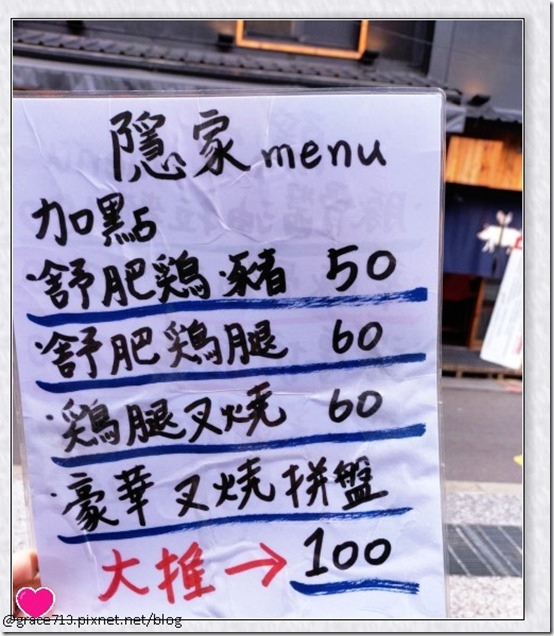 隱家menu
加點
舒肥鶏豬 50
舒肥鶏腿 60
鶏腿叉燒 60
豪華叉燒拼盤
大推→100
@grace713.pixnet.net/blog